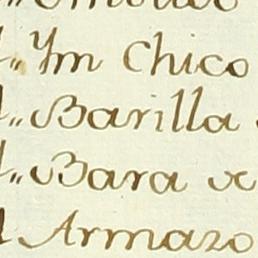 Ym Chico
Barilla
Bara
Armazo